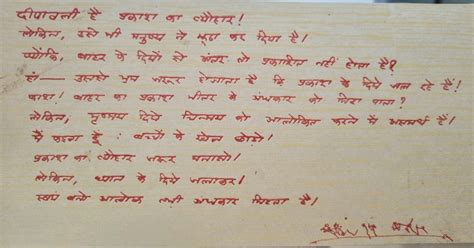 दीपावली है प्रकाश का त्यौहार!
लेकिन, उसे भी मनुष्य ने झूठा कर दिया है!
क्योंकि, बाहर के दियों से अंतर तो प्रकाशित नहीं होता है?
हां — उससे भ्रम जरूर होजाता है कि प्रकाश के दिये जल रहे हैं!
काश! बाहर का प्रकाश भीतर के अंधकार को मिटा पाता?
लेकिन, मृण्मय दिये चिन्मय को आलोकित करने में असमर्थ हैं!
मैं कहता हूँ : बच्चों के खेल छोड़ो!
प्रकाश का त्यौहार जरूर मनाओ!
लेकिन, ध्यान के दिये जलाकर!
स्वयं बनो आलोक तभी अंधकार मिटता है!